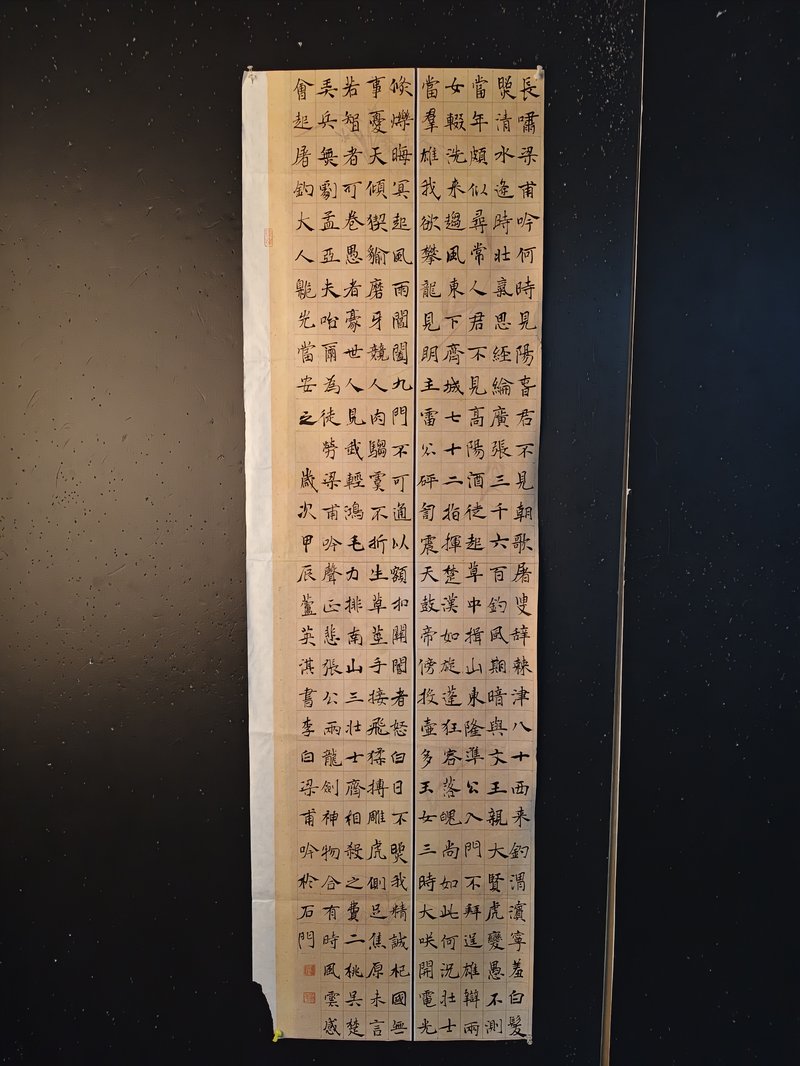 長嘯梁甫吟何時見陽旾君不見朝歌屠叟辞棘津八十西来釣渭濱寧羞白髮
照清水逢時壯氣思経綸廣張三千六百釣風期暗與文王親大賢虎變愚不測
當年頗似尋常人君不見高陽酒徒起草中揖山東隆準公入門不拜逞雄辯兩
女輟洗来趨風東下齊城七十二指揮楚漢如旋蓬狂客落魄尚如此何況壯士
當羣雄我欲攀龍見明主雷公砰訇震天鼓帝傍投壷多玉女三時大咲開電光
倐爍晦冥起風雨閶闔九門不可通以額扣關閽者怒白日不照我精誠杞國無
事憂天傾猰貐磨牙競人肉騶虞不折生草莖手接飛猱搏雕虎側足焦原未言
若智者可卷愚者豪世人見我輕鴻毛力排南山三壯士齊相殺之費二桃吳楚
弄兵無劇孟亞夫咍爾為徒勞梁甫吟聲正悲張公兩龍劍神物合有時風雲感
會起屠釣大人當安之 歲次甲辰蘆英淇書李白梁甫吟於石門